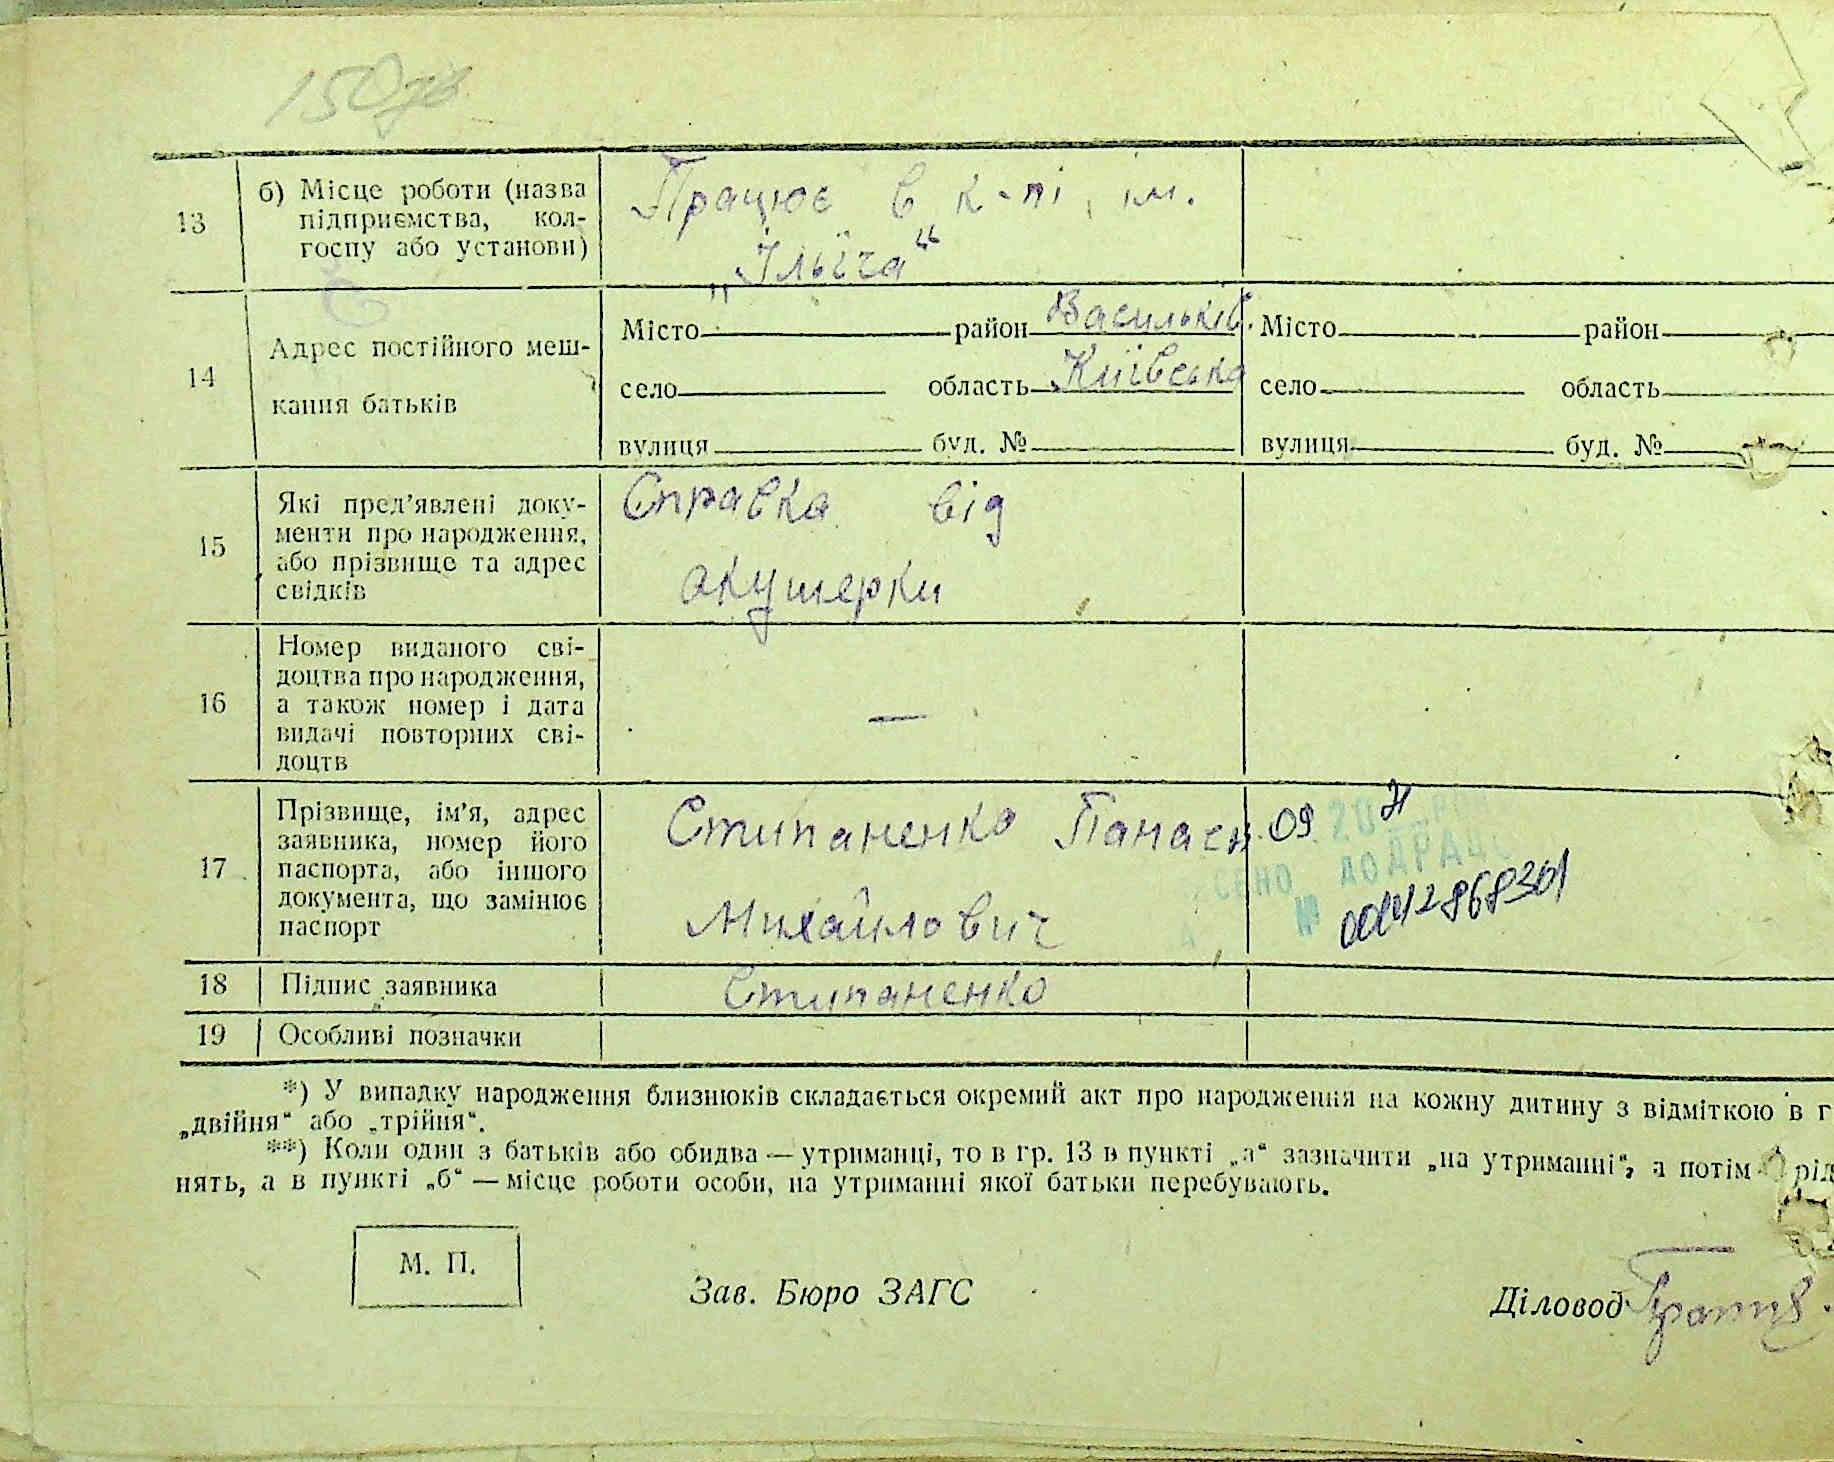 150 зв
13
б) Місце роботи (назва
підприємства, кол-
госпу або установи)
Працює в к-пі ім.
„Ілліча“
14
Адрес постійного меш-
кання батьків
Місто район Васильків.
село область Київська
вулиця буд. №
Місто район
село область
вулиця буд. №
15
Які пред'явлені доку-
менти про народження,
або прізвище та адрес
свідків
Справка від
акушерки
16
Номер виданого сві-
доцтва про народження,
а також номер і дата
видачі повторних сві-
доцтв
—
17
Прізвище, ім'я, адрес
заявника, номер його
паспорта, або іншого
документа, що замінює
паспорт
Стипаненко Панаси
Михайлович
09 20 21
СЕНО ДО ДРАЦС
№ 00412868301
18 Підпис заявника Стипаненко
19 Особливі позначки
*) У випадку народження близнюків складається окремий акт про народження на кожну дитину з відміткою в г
„двійня“ або „трійня“.
**) Коли один з батьків або обидва — утриманці, то в гр. 13 в пункті „а“ зазначити „на утриманні“, а потім рід
нять, а в пункті „б“ — місце роботи особи, на утриманні якої батьки перебувають.
М. П.
Зав. Бюро ЗАГС
Діловод